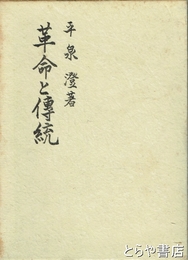 平泉澄著
革命と傳統
とらや書店